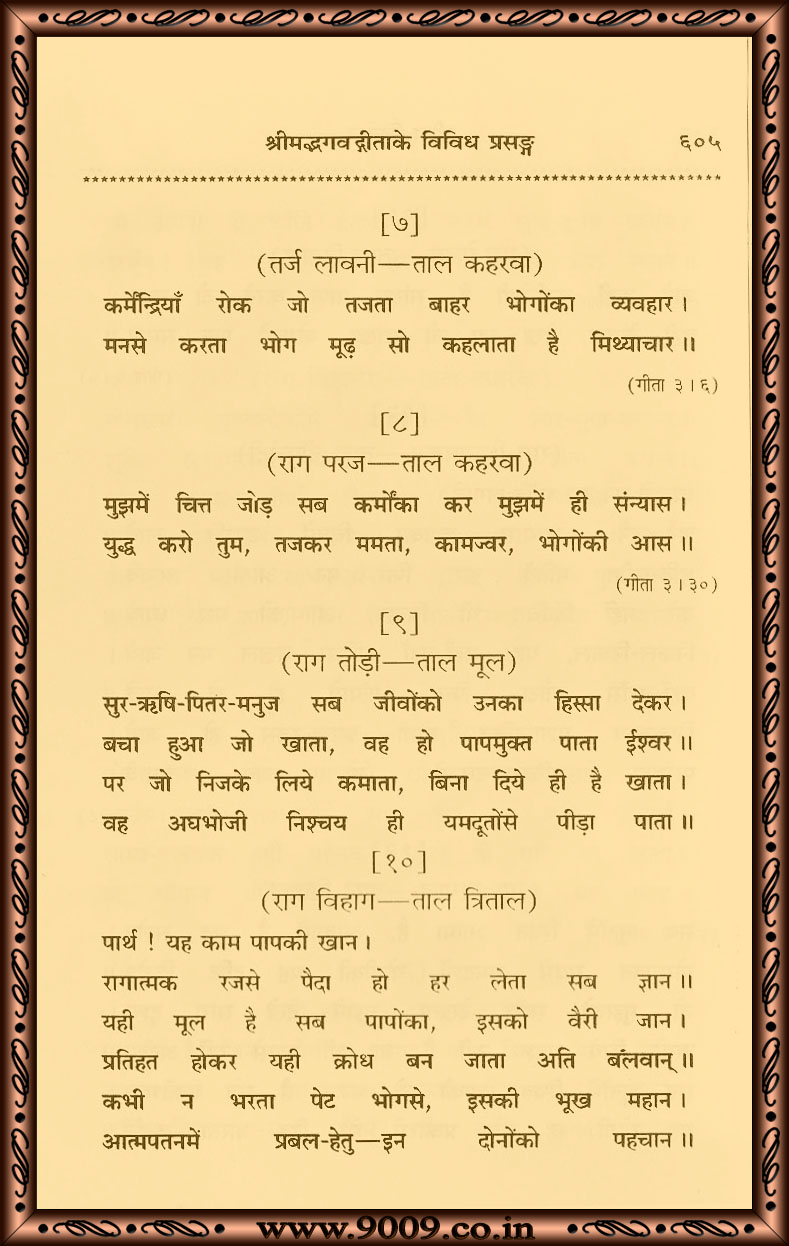 श्रीमद्भगवद्गीताके विविध प्रसङ्ग ६०५
[७]
(तर्ज लावनी—ताल कहरवा)
कर्मेन्द्रियाँ रोक जो तजता बाहर भोगोंका व्यवहार।
मनसे करता भोग मूढ़ सो कहलाता है मिथ्याचार॥
(गीता ३।६)
[८]
(राग परज—ताल कहरवा)
मुझमें चित्त जोड़ सब कर्मोंका कर मुझमें ही संन्यास।
युद्ध करो तुम, तजकर ममता, कामज्वर, भोगोंकी आस॥
(गीता ३।३०)
[९]
(राग तोड़ी—ताल मूल)
सुर-ऋषि-पितर-मनुज सब जीवोंको उनका हिस्सा देकर।
बचा हुआ जो खाता, वह हो पापमुक्त पाता ईश्वर॥
पर जो निजके लिये कमाता, बिना दिये ही है खाता।
वह अघभोजी निश्चय ही यमदूतोंसे पीड़ा पाता॥
[१०]
(राग विहाग—ताल त्रिताल)
पार्थ ! यह काम पापकी खान।
रागात्मक रजसे पैदा हो हर लेता सब ज्ञान॥
यही मूल है सब पापोंका, इसको वैरी जान।
प्रतिहत होकर यही क्रोध बन जाता अति बलवान्॥
कभी न भरता पेट भोगसे, इसकी भूख महान।
आत्मपतनमें प्रबल-हेतु—इन दोनोंको पहचान॥
www.9009.co.in